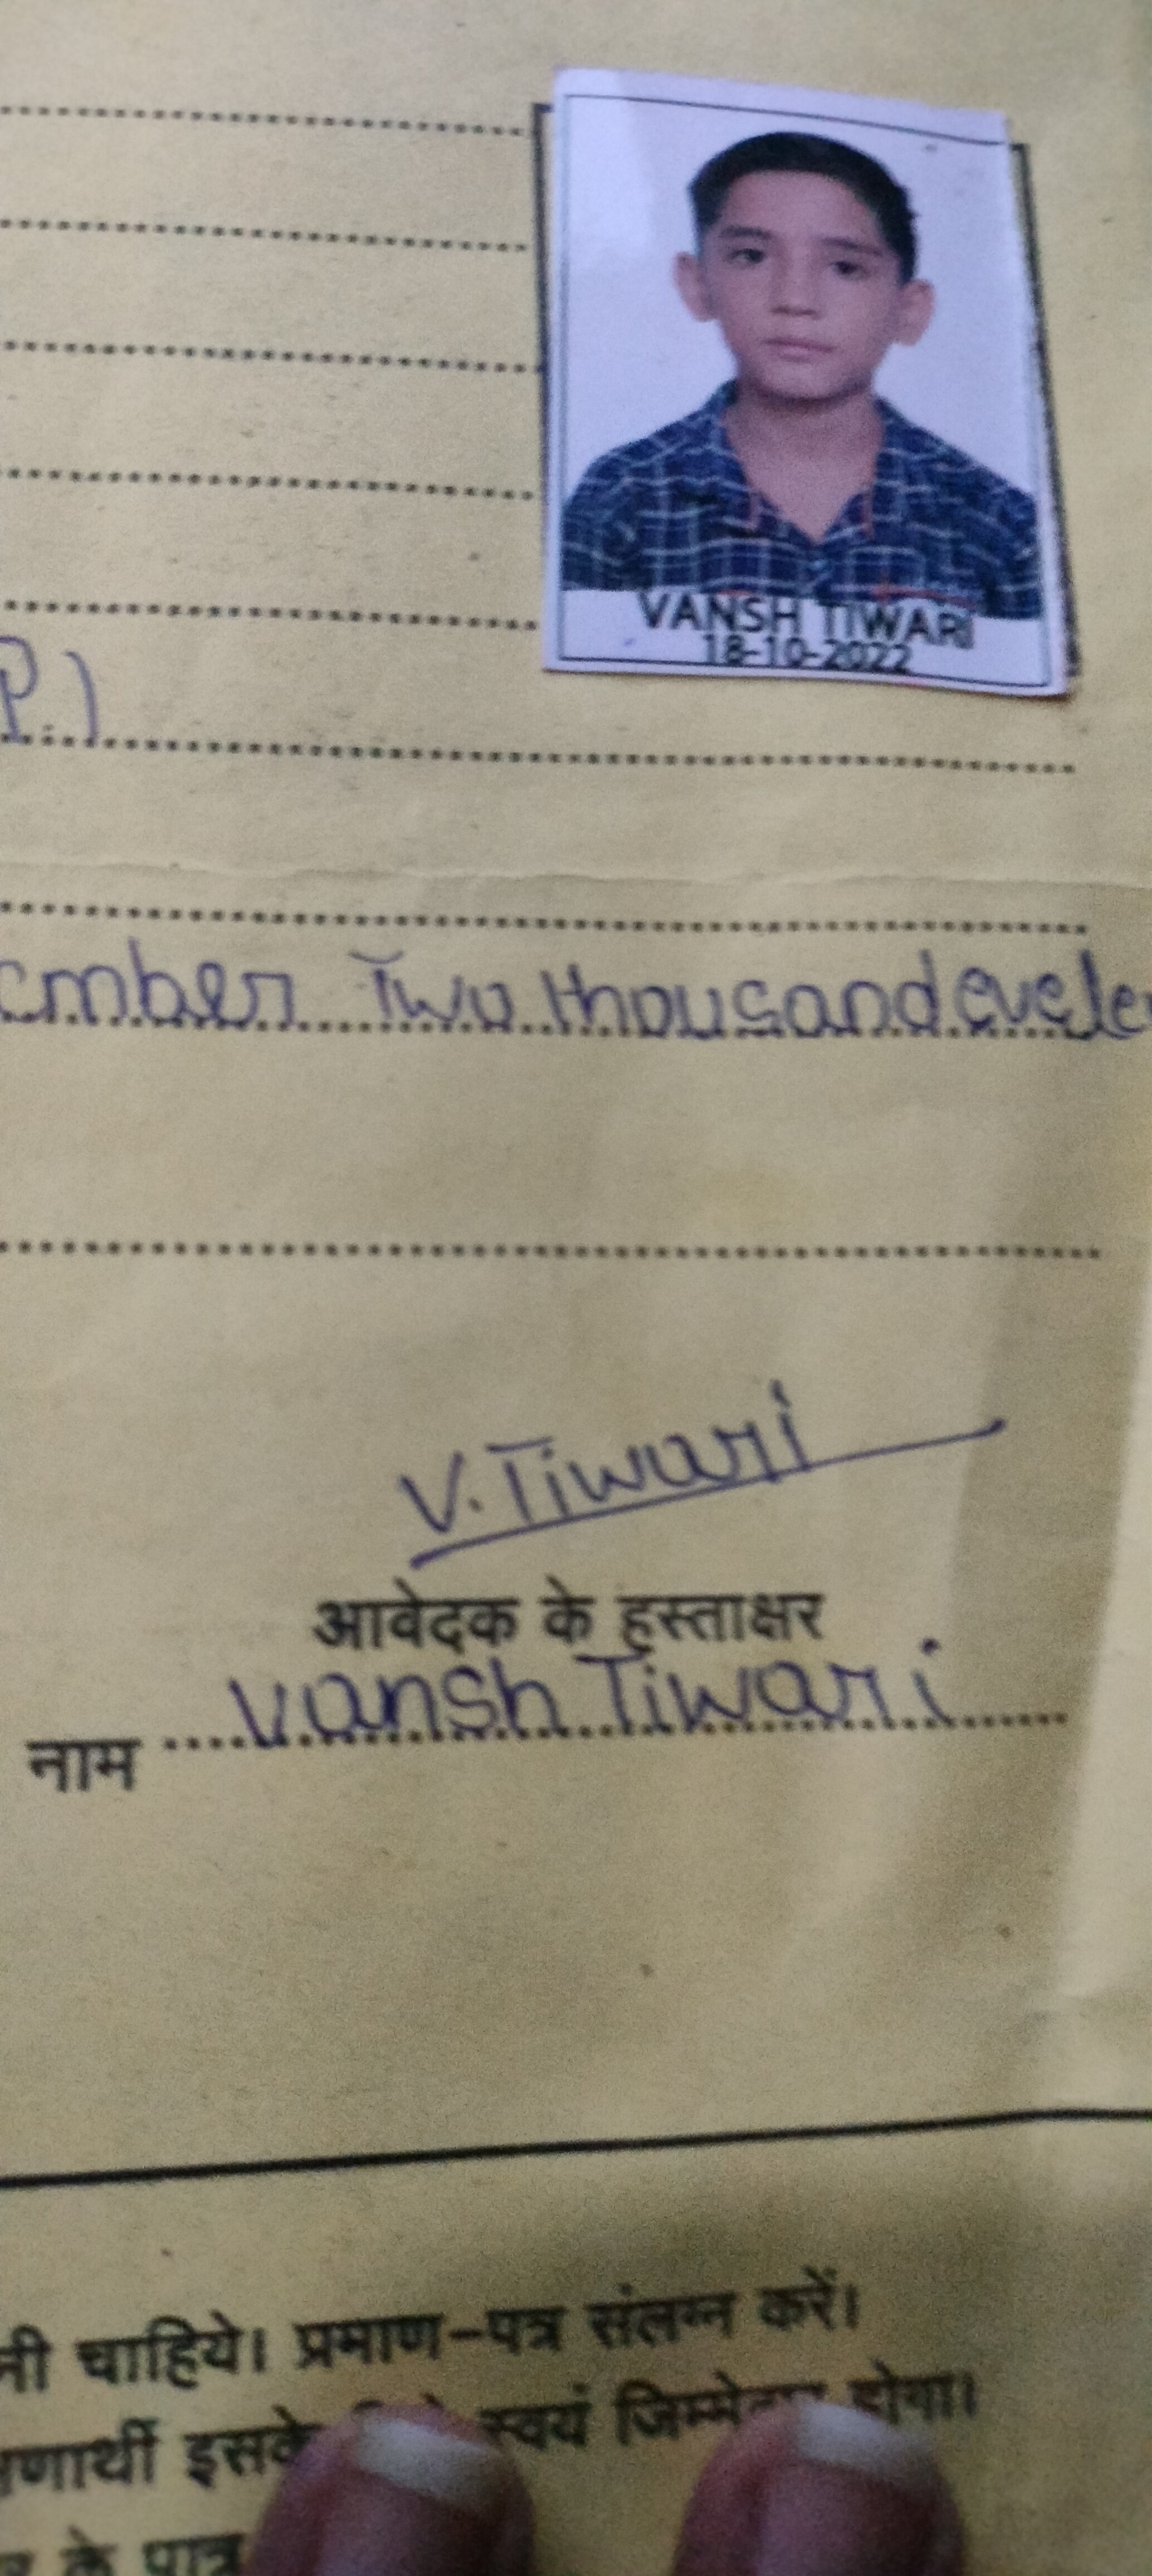 VANSH TIWARI
18-10-2022
P.)
cmber Two thousand evele
V. Tiwari
आवेदक के हस्ताक्षर
नाम Vansh Tiwari
नी चाहिये। प्रमाण-पत्र संलग्न करें।
णार्थी इसके स्वयं जिम्मेदार होगा।
के पात्र